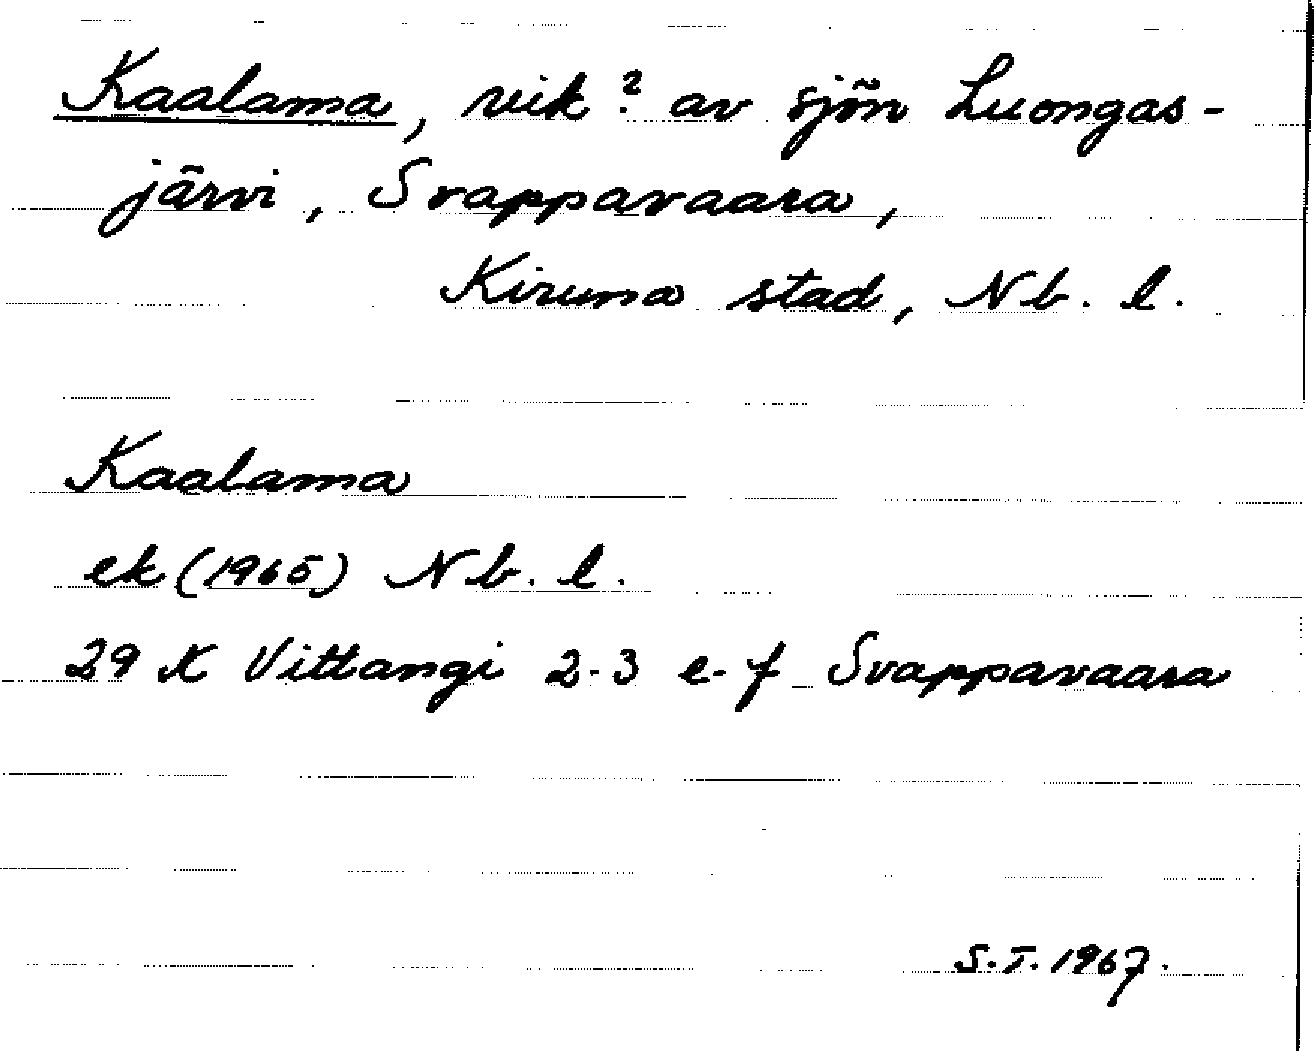 Kaalama, vik? av sjön Luongas-
järvi, Svappavaara,
Kiruna stad, Nb. l.
Kaalama
ek (1965) Nb. l.
29 K Vittangi 2-3 e-f Svappavaara
S.T. 1967.